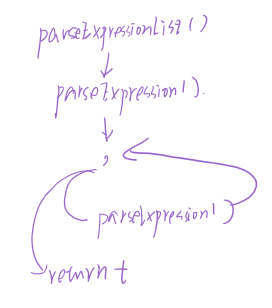 parseExpressionList()
parseExpression().
,
parseExpression()
return t